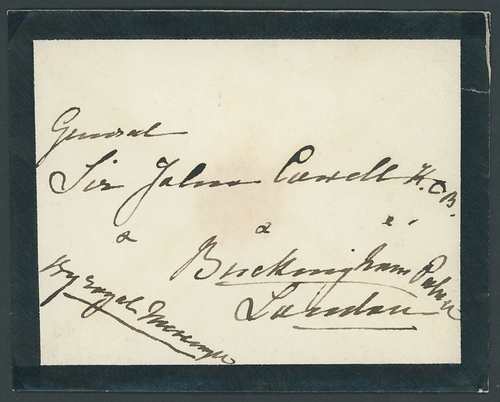 General
Sir John Cowell K.C.B.
& & &.
Buckingham Palace
London
By Royal Messenger